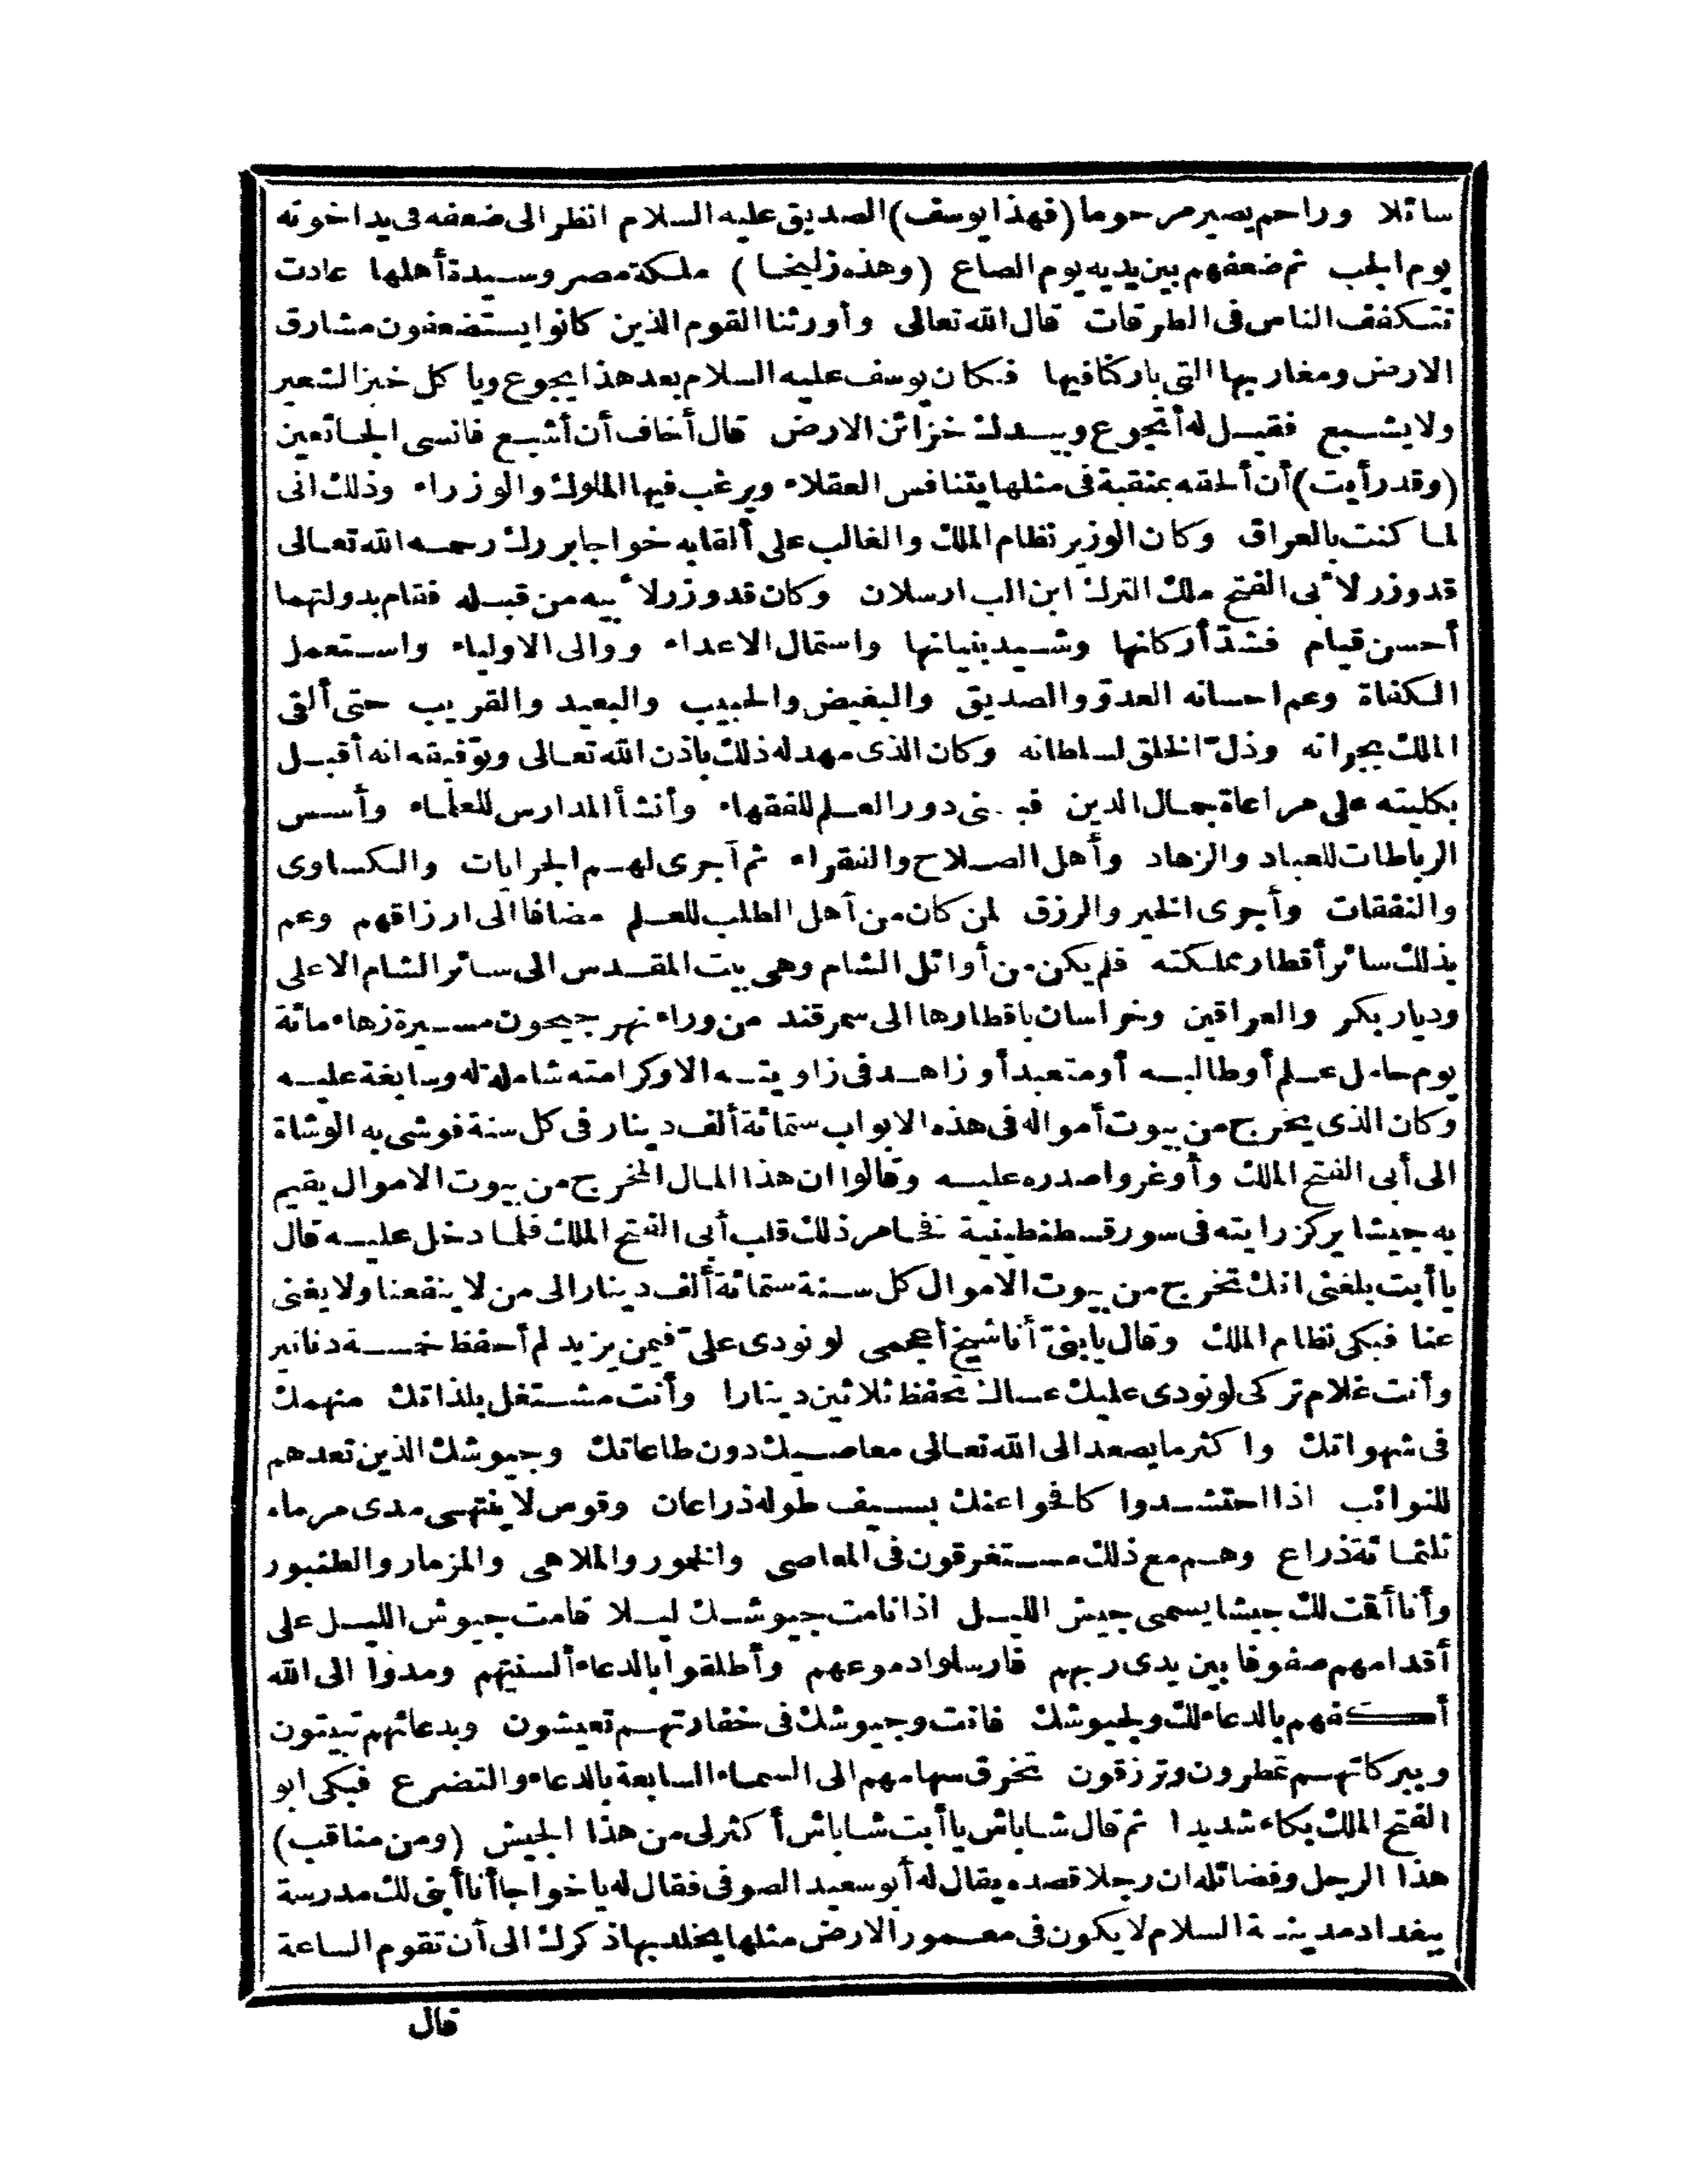 سائلا وراحم يصير مرحوما (فهذا يوسف) الصديق عليه السلام انظر الى ضعفه فى يد اخوته
يوم الجب ثم ضعفهم بين يديه يوم الصاع (وهذه زليخا) ملكة مصر وسيدة أهلها عادت
تتكفف الناس فى الطرقات قال الله تعالى وأورثنا القوم الذين كانوا يستضعفون مشارق
الارض ومغاربها التى باركنا فيها فكان يوسف عليه السلام بعد هذا يجوع ويا كل خبز الشعير
ولا يشبع فقيل له أتجوع وبيدك خزائن الارض قال أخاف أن أشبع فانسى الجائعين
(وقد رأيت) أن ألحقه بمنقبة فى مثلها يتنافس العقلاء ويرغب فيها الملوك والوزراء وذلك انى
لما كنت بالعراق وكان الوزير نظام الملك والغالب على ألقابه خواجا بزرك رحمه الله تعالى
قد وزر لأبى الفتح ملك الترك ابن الب ارسلان وكان قد وزر لأبيه من قبله فقام بدولتهما
أحسن قيام فشدّ أركانها وشيد بنيانها واستمال الاعداء ووالى الاولياء واستعمل
الكفاة وعم احسانه العدوّ والصديق والبغيض والحبيب والبعيد والقريب حتى ألقى
الملك بجرانه وذلّ الخلق لسلطانه وكان الذى مهد له ذلك باذن الله تعالى وتوفيقه انه أقبل
بكليته على مراعاة جمال الدين فبنى دور العلم للفقهاء وأنشأ المدارس للعلماء وأسس
الرباطات للعباد والزهاد وأهل الصلاح والفقراء ثم أجرى لهم الجرايات والكساوى
والنفقات وأجرى الخبر والرزق لمن كان من أهل الطلب للعلم مضافا الى ارزاقهم وعم
بذلك سائر أقطار مملكته فلم يكن من أوائل الشام وهى بيت المقدس الى سائر الشام الاعلى
وديار بكر والعراقين وخراسان باقطارها الى سمرقند من وراء نهر جيحون مسيرة زهاء مائة
يوم حامل علم أو طالبه أو متعبد أو زاهد فى زاويته الا وكرامته شاملة له وسابغة عليه
وكان الذى يخرج من بيوت أمواله فى هذه الابواب ستمائة ألف دينار فى كل سنة فوشى به الوشاة
الى أبى الفتح الملك وأوغروا صدره عليه وقالوا ان هذا المال المخرج من بيوت الاموال يقيم
به جيشا يركز رايته فى سور قسطنطينية فخامر ذلك قلب أبى الفتح الملك فلما دخل عليه قال
يا أبت بلغنى انك تخرج من بيوت الاموال كل سنة ستمائة ألف دينار الى من لا ينفعنا ولا يغنى
عنا فبكى نظام الملك وقال يا بنىّ أنا شيخ أعجمى لو نودى علىّ فيمن يزيد لم أحفظ خمسة دنانير
وأنت غلام تركى لو نودى عليك عساك تحفظ ثلاثين دينارا وأنت مشتغل بلذاتك منهمك
فى شهواتك واكثر ما يصعد الى الله تعالى معاصيك دون طاعاتك وجيوشك الذين تعدهم
للنوائب اذا احتشدوا كافحوا عنك بسيف طوله ذراعان وقوس لا ينتهى مدى مرماه
ثلثمائة ذراع وهم مع ذلك مستغرقون فى المعاصى والخمور والملاهى والمزمار والطنبور
وأنا أقت لك جيشا يسمى جيش الليل اذا نامت جيوشك ليلا قامت جيوش الليل على
أقدامهم صفوفا بين يدى ربهم فارسلوا دموعهم وأطلقوا بالدعاء ألسنتهم ومدوا الى الله
أكفهم بالدعاء لك ولجيوشك فانت وجيوشك فى خفارتهم تعيشون وبدعائهم تبيتون
وببركاتهم تمطرون وترزقون تخرق سهامهم الى السماء السابعة بالدعاء والتضرع فبكى ابو
الفتح الملك بكاء شديدا ثم قال شاباش يا أبت شاباش أكثر لى من هذا الجيش (ومن مناقب)
هذا الرجل وفضائله ان رجلا قصده يقال له أبو سعيد الصوفى فقال له يا خواجا أنا أبنى لك مدرسة
ببغداد مدينة السلام لا يكون فى معمور الارض مثلها يخلد بها ذكرك الى أن تقوم الساعة
قال